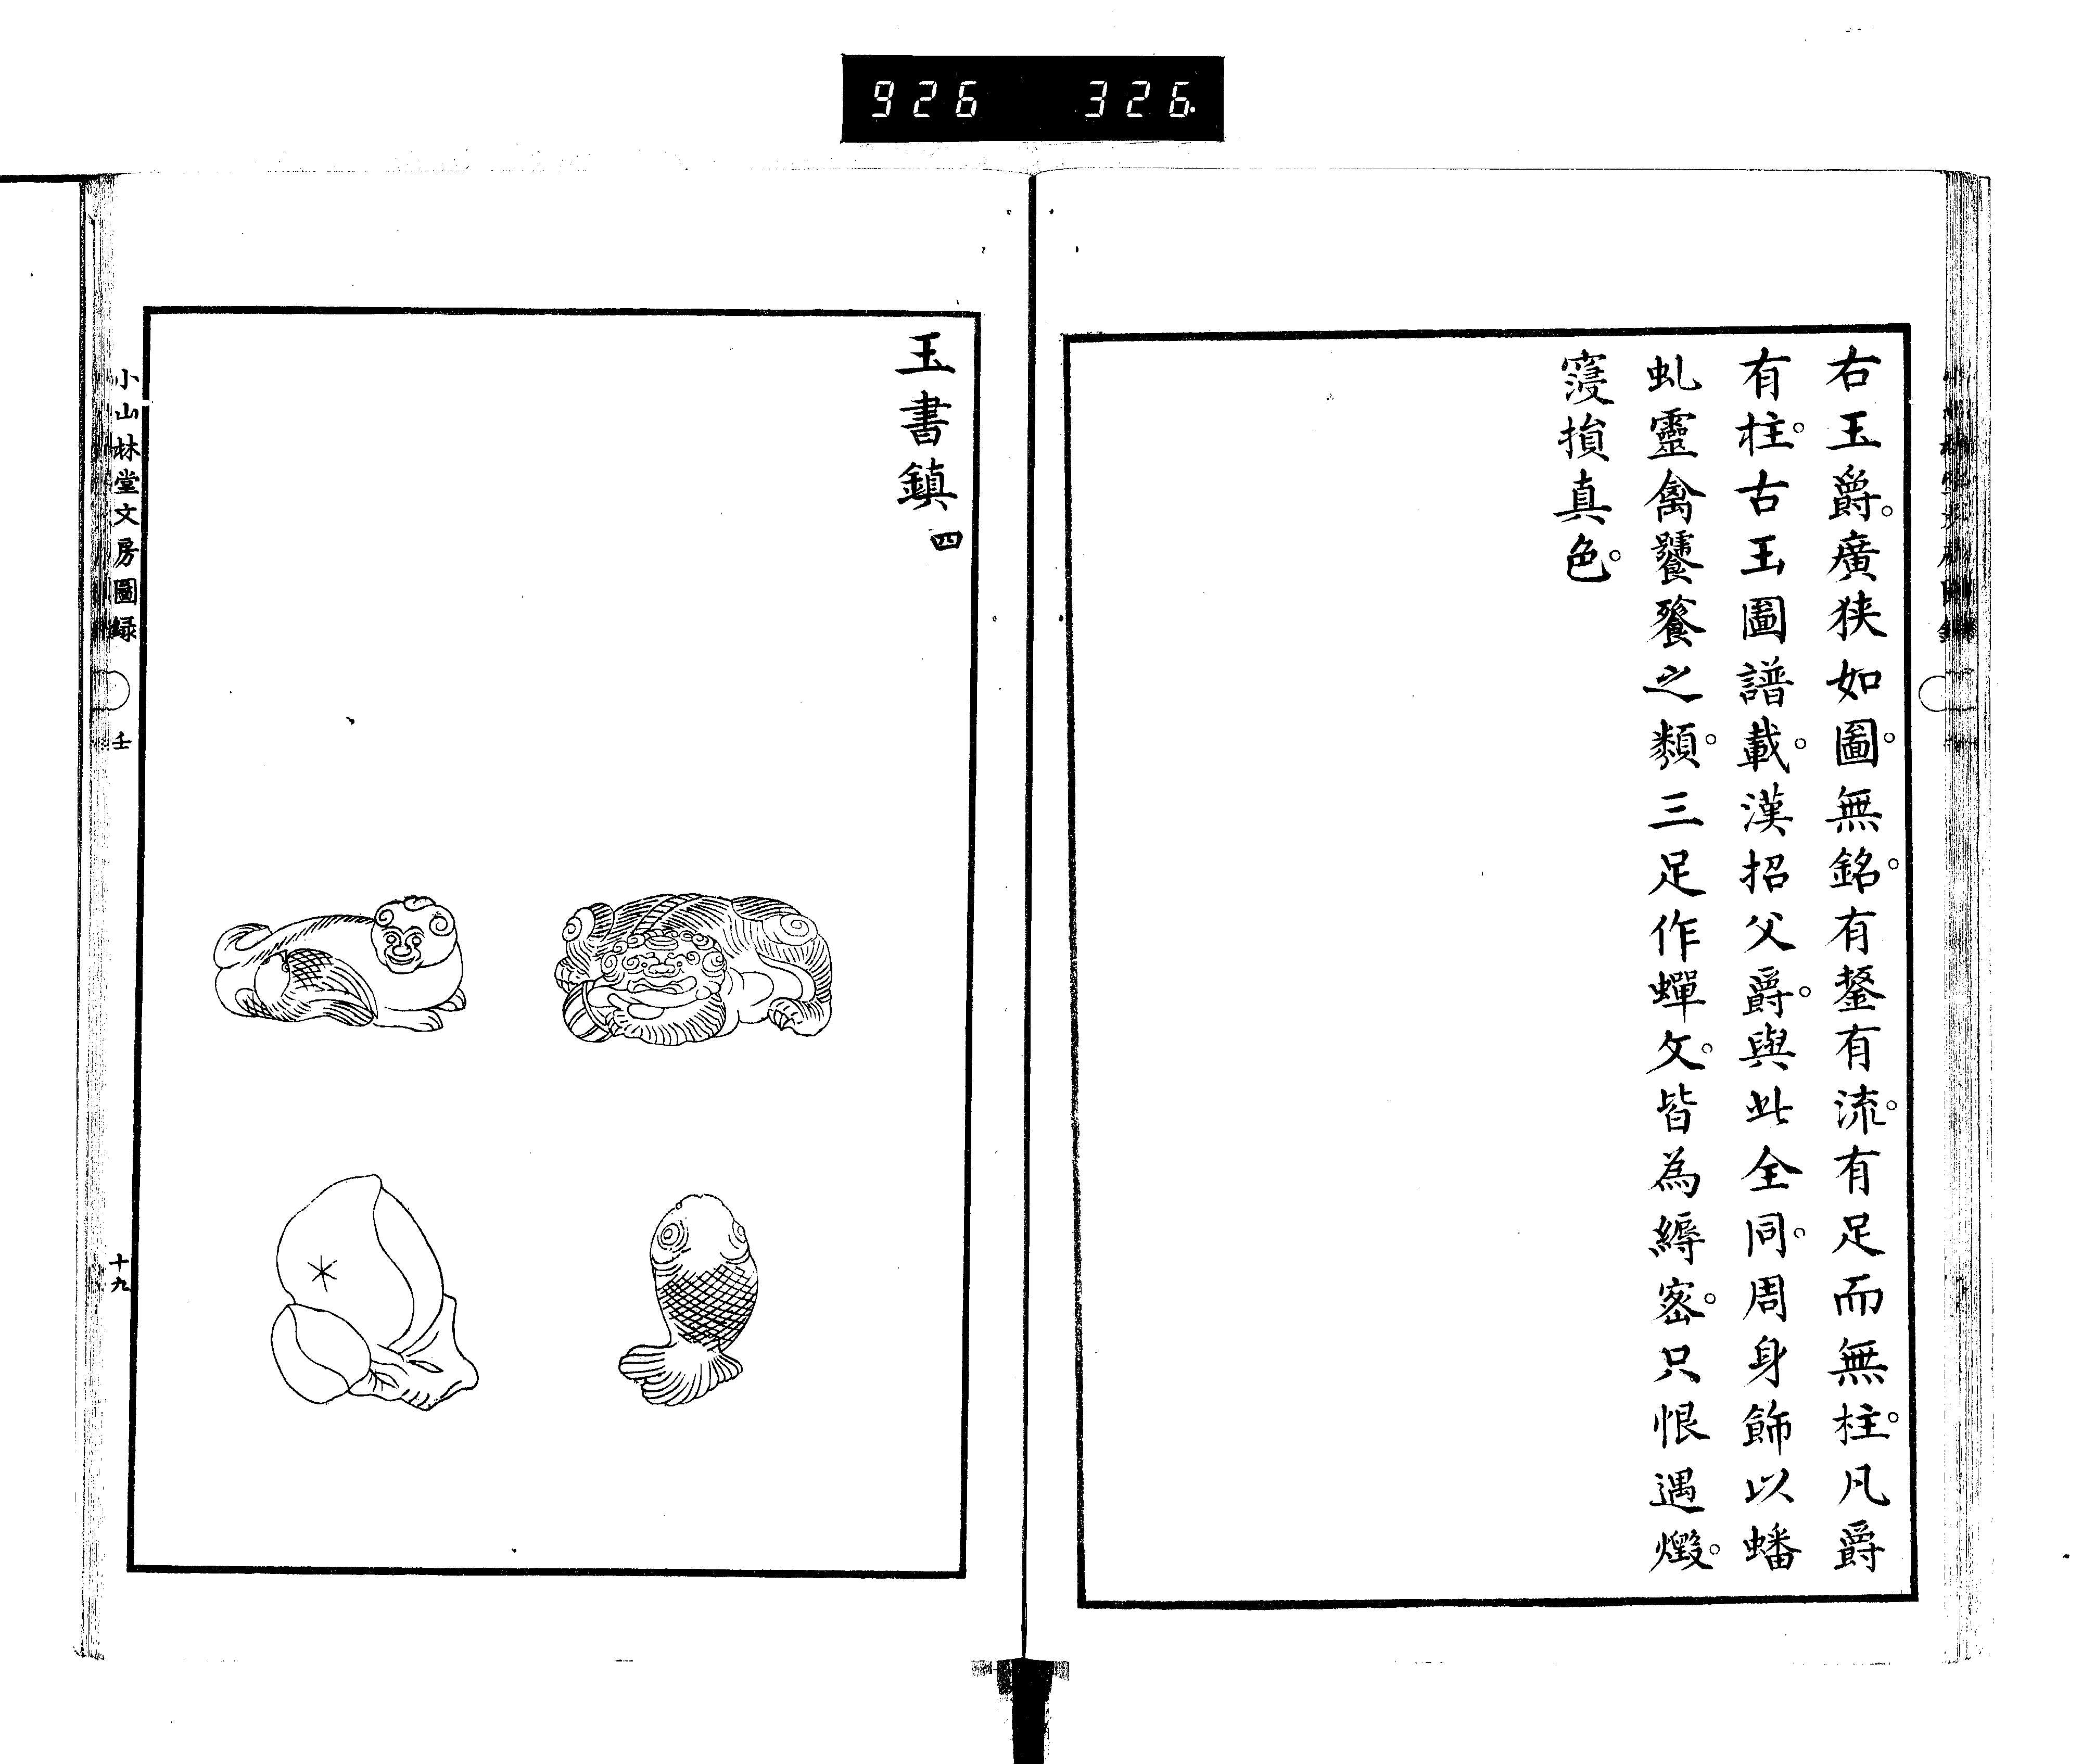 926 326.
右玉爵。廣狭如圖。無銘。有鋬有流。有足而無柱。凡爵
有柱。古玉圖譜載。漢招父爵。與此全同。周身飾以蟠
虬靈禽饕餮之類。三足作蟬文。皆為縟密。只恨遇燬。
寖損真色。
玉書鎮 四
小山林堂文房圖録 壬 十九